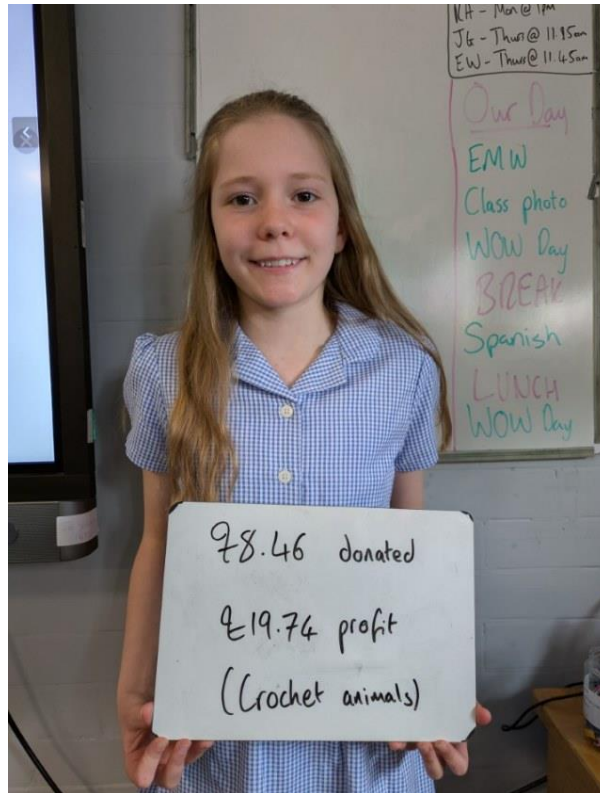 KA - Mon @ 1pm
JG - Thurs @ 11.15am
EW - Thurs @ 11.45am
Our Day
EMW
Class photo
WOW Day
BREAK
Spanish
LUNCH
WOW Day
£8.46 donated
£19.74 profit
(Crochet animals)